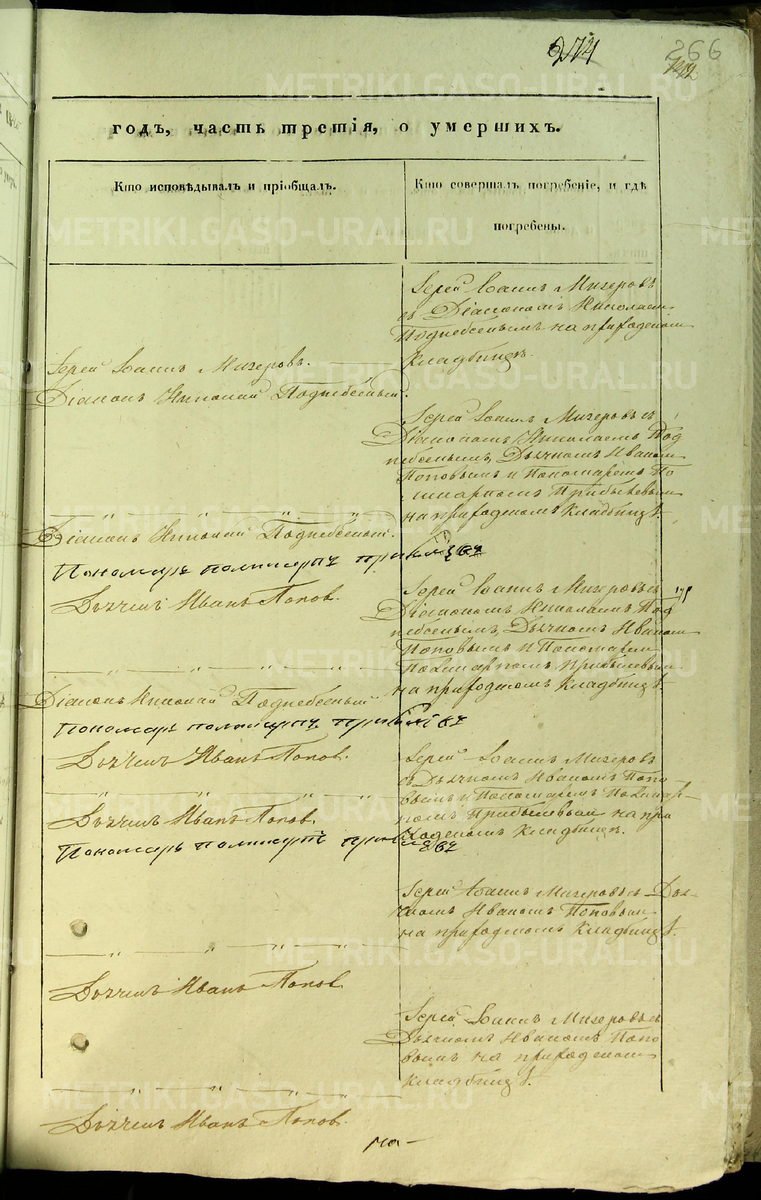 266
годъ, часть третія, о умершихъ.
Кто исповѣдывалъ и пріобщалъ.
Кто совершалъ погребеніе, и гдѣ
погребены.
METRIKI.GASO-URAL.RU
Іерей Іоаннъ Мизеровъ
съ Діакономъ Николаемъ
Поднебеснымъ на приходскомъ
кладбищѣ.
Іерей Іоаннъ Мизеровъ.
Діаконъ Николай Поднебесный.
Іерей Іоаннъ Мизеровъ съ
Діакономъ Николаемъ Под
небеснымъ, Дьячкомъ Иваномъ
Поповымъ и Пономаремъ По
ликарпомъ Прибылевымъ
на приходскомъ кладбищѣ.
Діаконъ Николай Поднебесный.
Пономарь Поликарпъ
Дьячекъ Иванъ Попов.
Іерей Іоаннъ Мизеровъ съ
Діакономъ Николаемъ Под
небеснымъ, Дьячкомъ Иваномъ
Поповымъ и Пономаремъ
Поликарпомъ Прибылевымъ
на приходскомъ кладбищѣ.
Діаконъ Николай Поднебесный
Пономарь Поликарпъ
Дьячекъ Иванъ Попов.
Іерей Іоаннъ Мизеровъ
съ Дьячкомъ Иваномъ Попо-
вымъ и Пономаремъ Поликар-
помъ Прибылевым на при
ходскомъ кладбищѣ.
Дьячекъ Иванъ Попов.
Пономарь Поликарпъ
Іерей Іоаннъ Мизеровъ съ Дья-
чкомъ Иваномъ Поповым
на приходскомъ кладбищѣ.
Дьячекъ Иванъ Попов.
Іерей Іоаннъ Мизеровъ съ
Дьячкомъ Иваномъ Попо
вымъ на приходскомъ
кладбищѣ.
Дьячекъ Иванъ Попов.